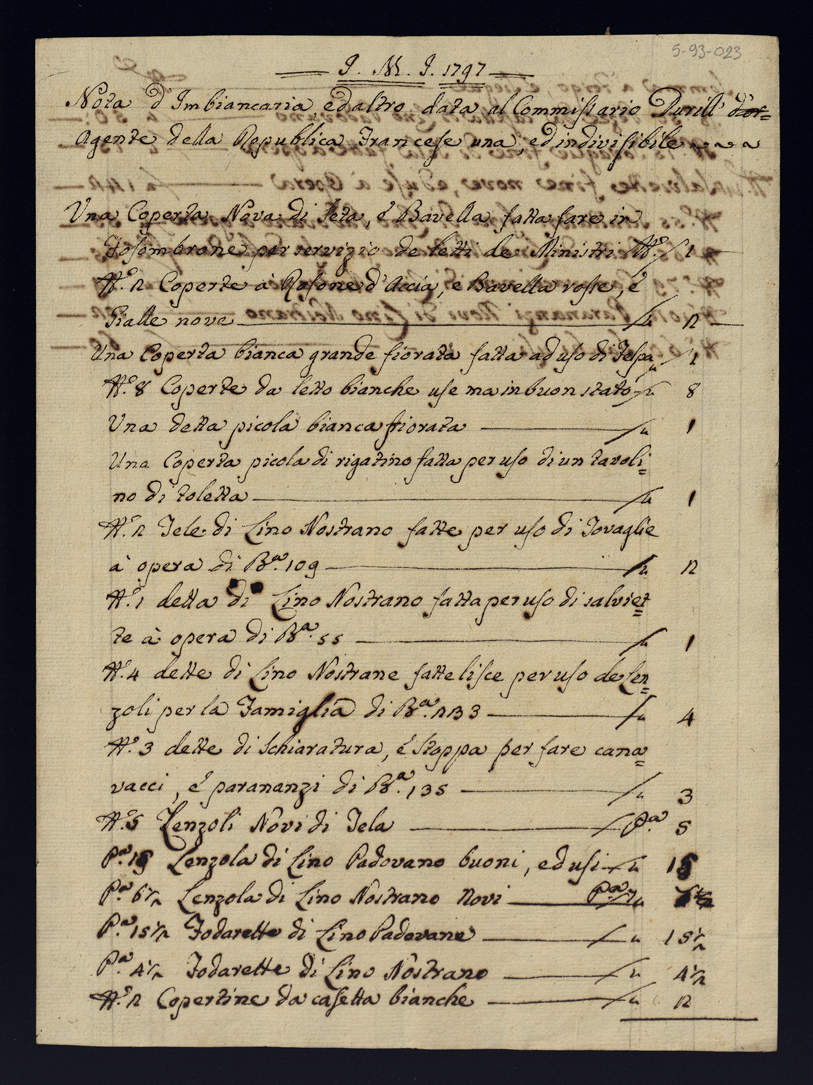 5-93-023
J. M. J. 1797
Nota d'Imbiancaria ed altro data al Commissario Durell
Agente della Republica Francese una ed indivisibile
Una Coperta Nova di Seta, é Bavella fatta fare in
Fosombrone per servizio de letti de Ministri N.o 1
N.o 2 Coperte à Rosone d'Accia, e Bavella rosse, é
Gialle nove 2
Una Coperta bianca grande fiorata fatta ad uso di Tesa 1
N.o 8 Coperte da letto bianche use ma in buon stato 8
Una detta picola bianca fiorata 1
Una Coperta picola di rigatino fatta per uso di un tavoli=
no di toletta 1
N.o 2 Tele di Lino Nostrano fatte per uso di Tovaglie
à opera di B.a 109 2
N.o 1 detta di Lino Nostrano fatta per uso di salviet=
te à opera di B.a 55 1
N.o 4 dette di Lino Nostrane fatte lisce per uso de Len=
zoli per la Famiglia di B.a 233 4
N.o 3 dette di Schiaratura, é stoppa per fare cana=
vacci, é parananzi di B.a 135 3
N.o 5 Lenzoli Novi di Tela P.a 5
P.a 15 Lenzola di Lino Padovano buoni, ed usi 15
P.a 6 1/2 Lenzola di Lino Nostrano Novi P.a 7
P.a 15 1/2 Fodarette di Lino Padovane 15 1/2
P.a 4 1/2 Fodarette di Lino Nostrano 4 1/2
N.o 2 Copertine da casetta bianche 2